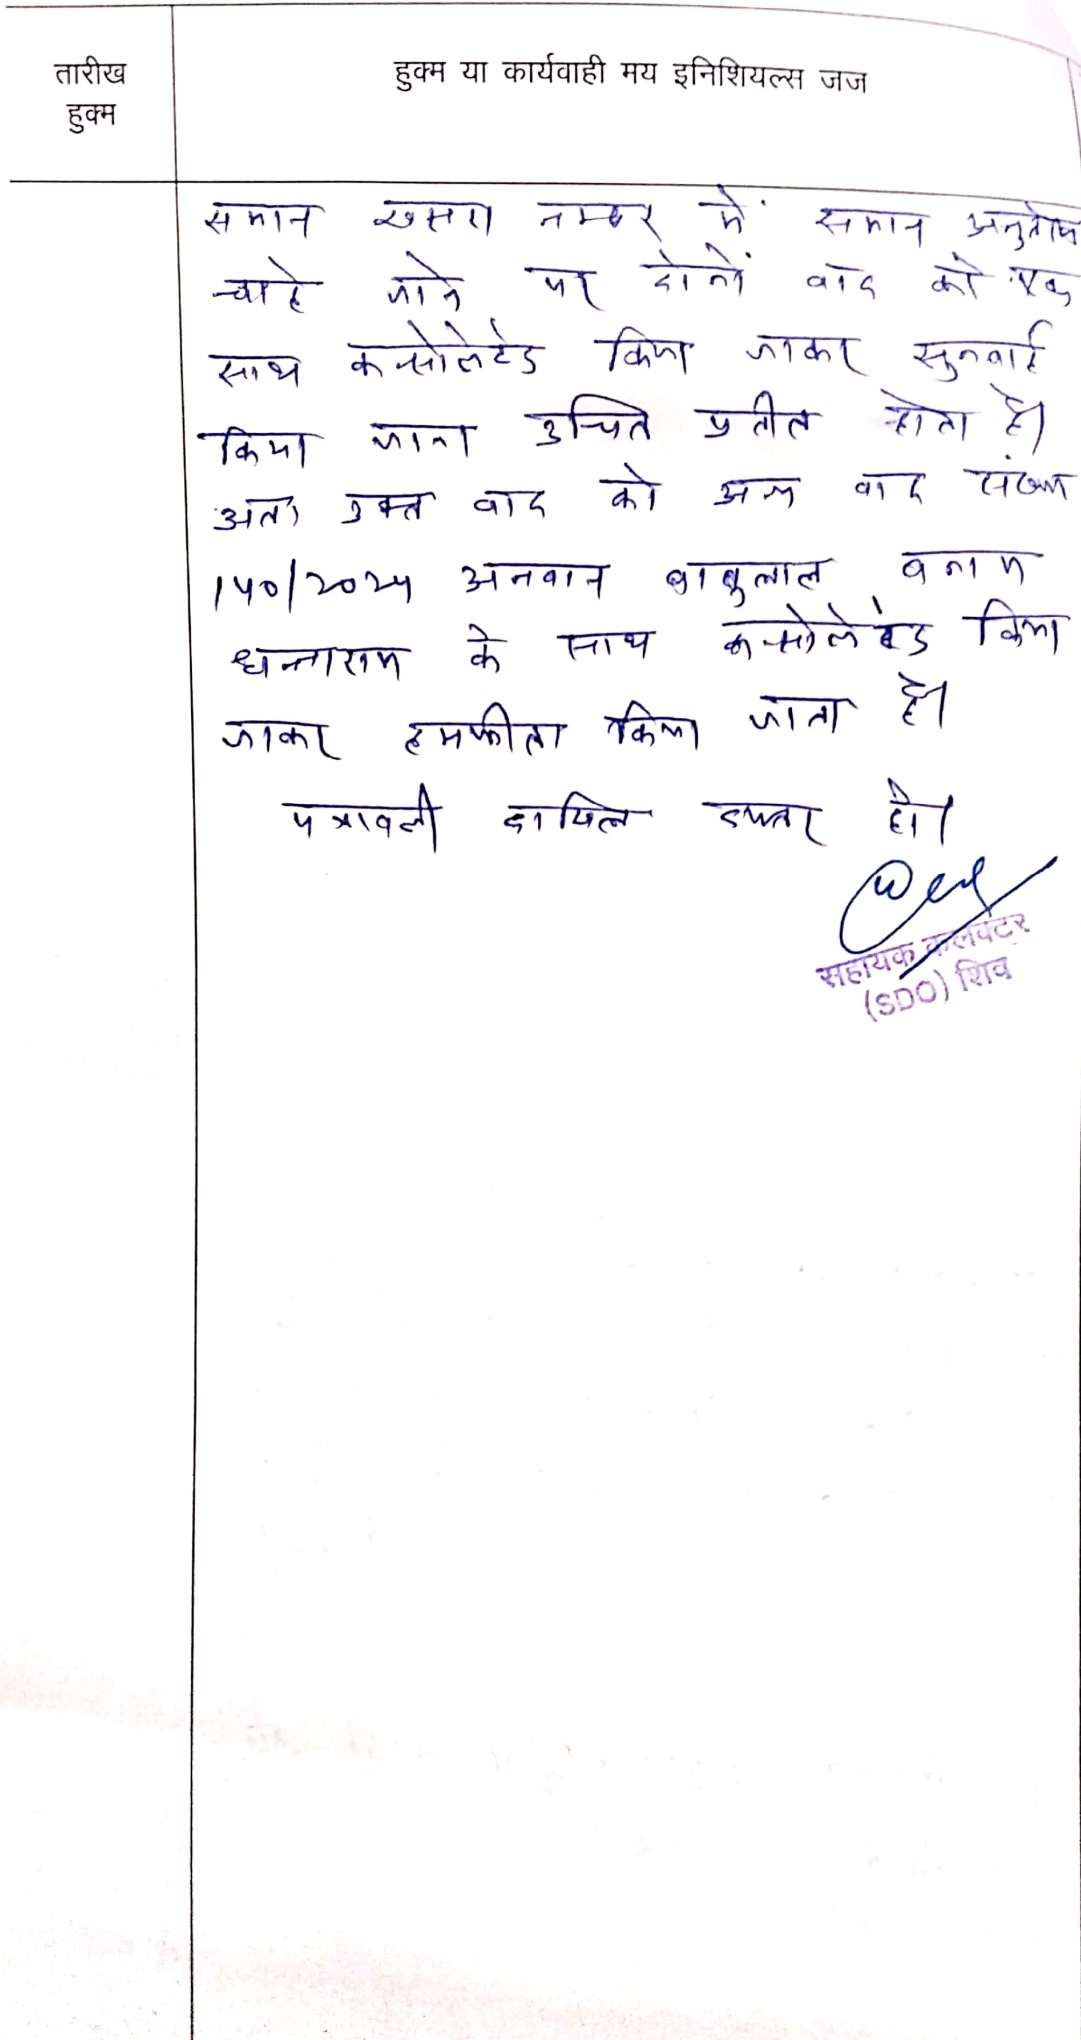 तारीख
हुक्म
हुक्म या कार्यवाही मय इनिशियल्स जज
समान खसरा नम्बर में समान अनुतोष
चाहे जाने पर दोनों वाद को एक
साथ कन्सोलेटेड किया जाकर सुनवाई
किया जाना उचित प्रतीत होता है।
अतः उक्त वाद को अन्य वाद संख्या
अनवान बाबुलाल बनाम
धन्नाराम के साथ कन्सोलेटेड किया
जाकर हमफीता किया जाता है।
पत्रावली दाखिल दफ्तर हो।
सहायक कलक्टर
(SDO) शिव